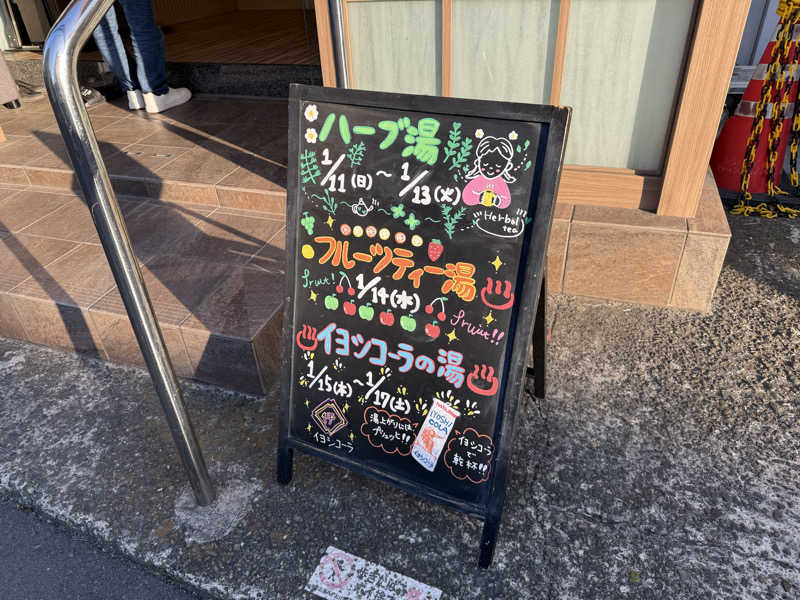 ハーブ湯
1/11(日)～1/13(火)
Herbal tea
フルーツティー湯
fruit!
1/14(水)
fruit!!
イヨシコーラの湯
1/15(木)～1/17(土)
イヨシコーラ
湯上がりには
プシュッと!!
IYOSHI
COLA
イヨシコーラ
イヨシコーラ
で
乾杯!!